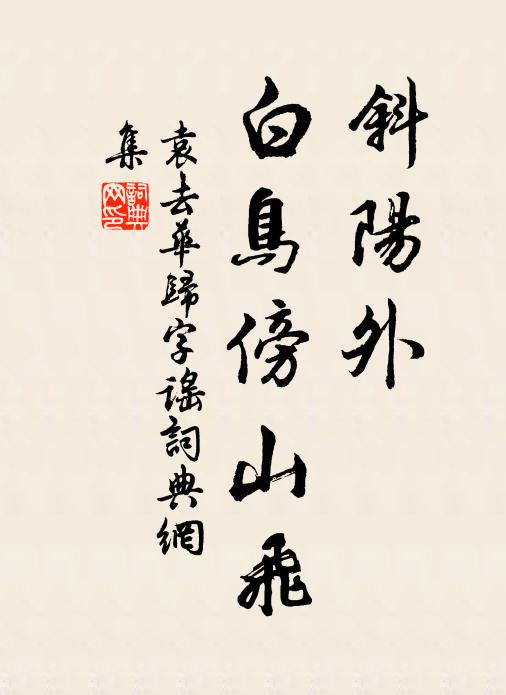 斜陽外
白鳥傍山飛
袁去華歸字謠詞典網
集
詞典
网印